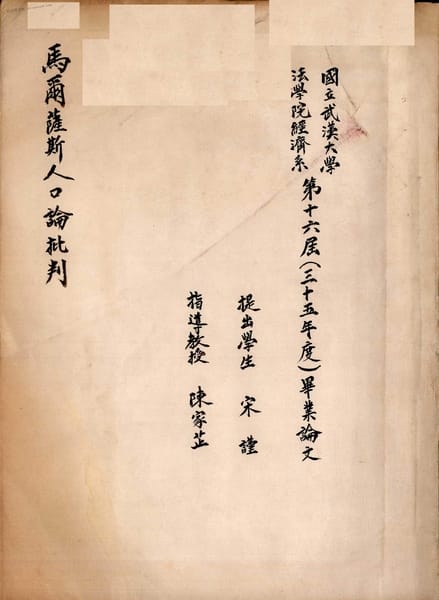 國立武漢大學
法學院經濟系
第十六屆(三十五年度)畢業論文
提出學生 宋謹
指導教授 陳家芷
馬爾薩斯人口論批判